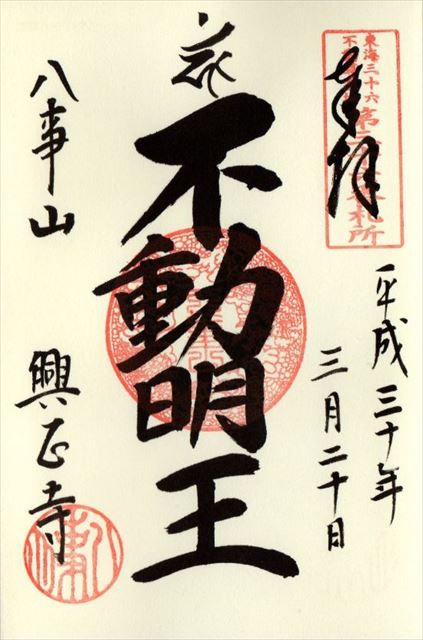 東海三十六
奉拝
札所
平成三十年
三月二十日
不動明王
八事山
興正寺